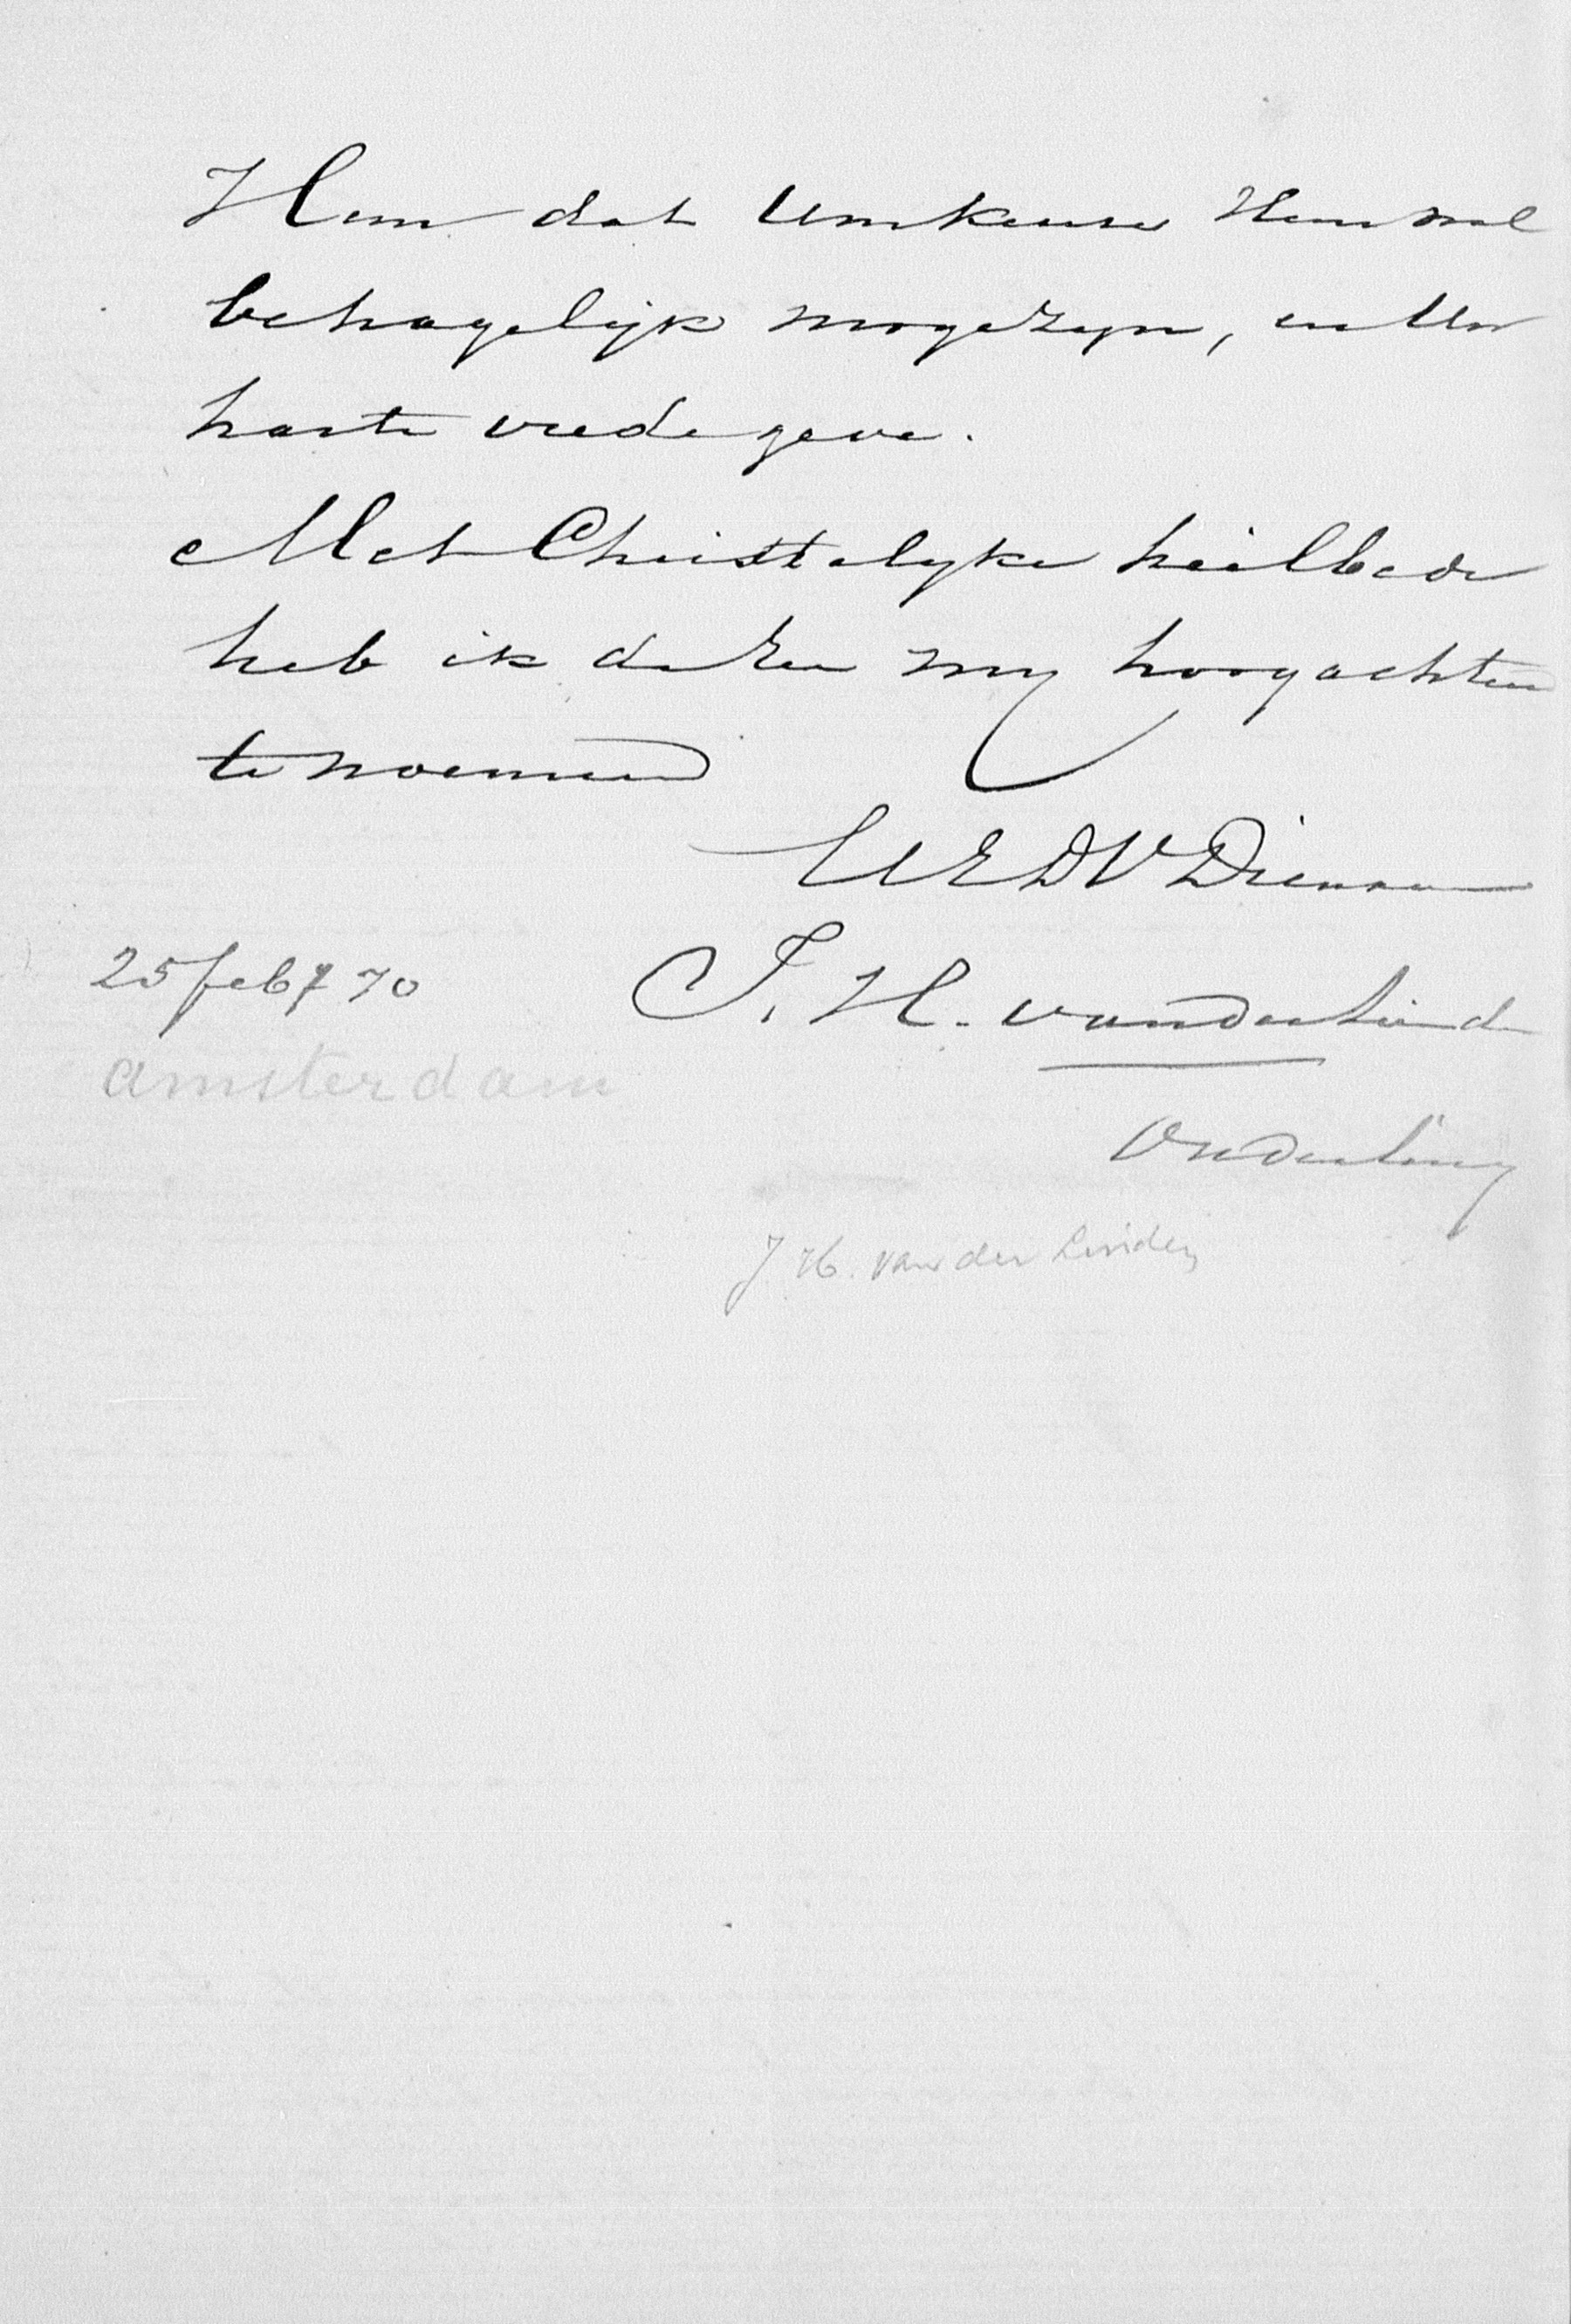 Hem dat Uw keuse Hem wel
behagelijk moge zyn, en Uw
harte vrede geve.
Met Christelyke heilbede
heb ik de Eer my hoogachtend
te noemen
UEDV Dienaar
25 feb 70
J. H. van der Linden
Amsterdam
Ouderling
J. H. van der Linden